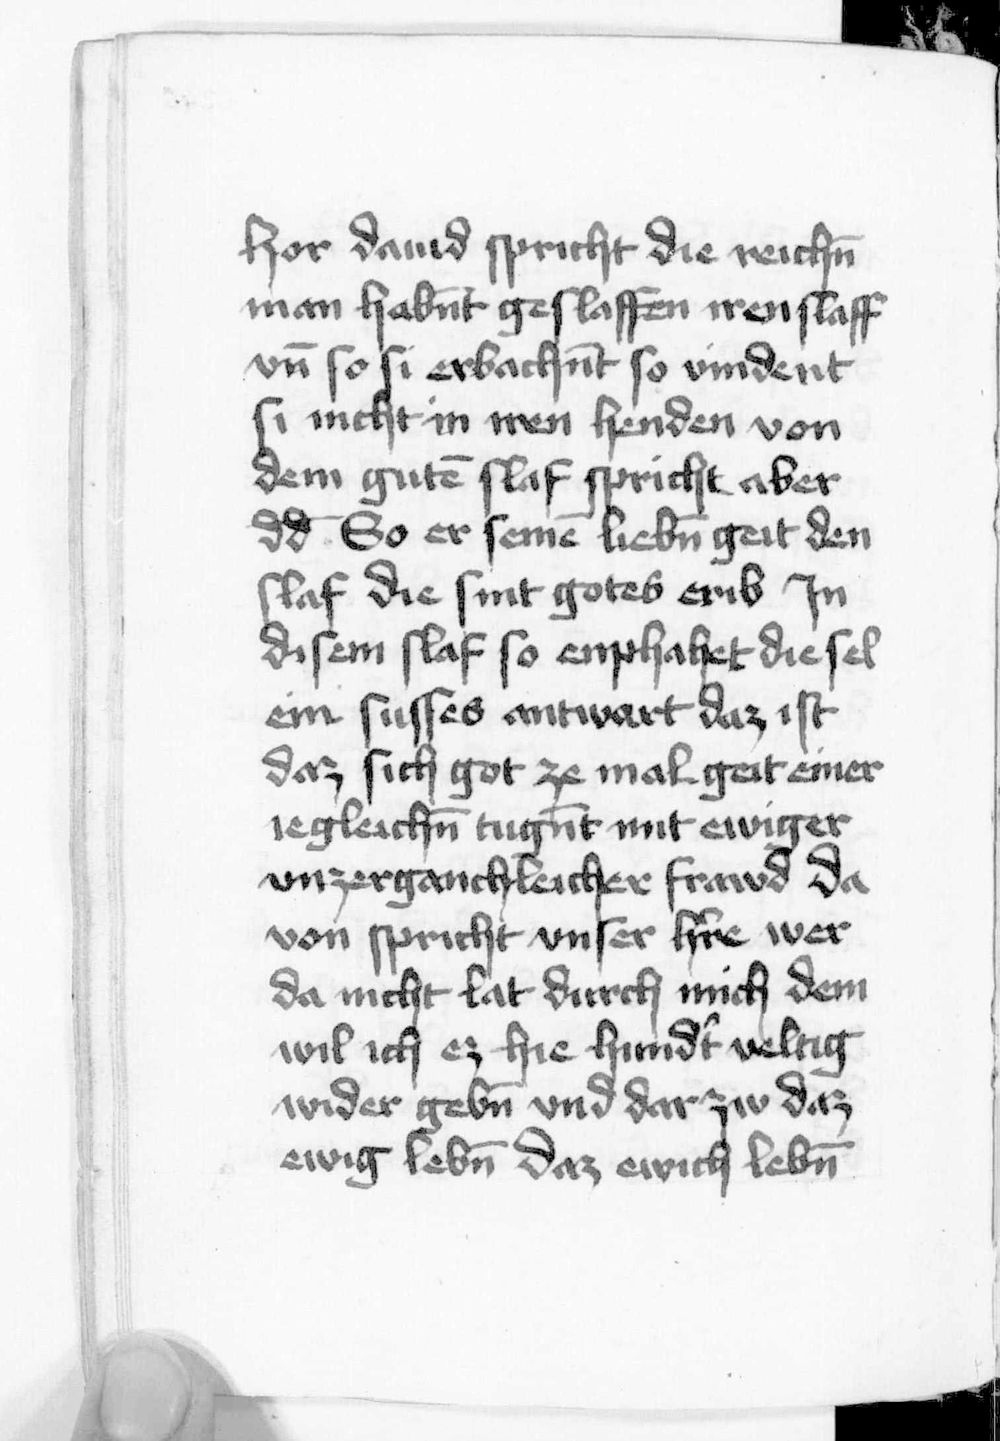 Hor dauid spricht die reichn̄
man habn̄t geslaffen iren slaff
vn̄ so si erbachn̄t so vindent
si nicht in iren henden von
dem gutē slaf spricht aber
dd̄ So er seinē liebn̄ geit den
slaf die sint gotes erib In
disem slaf so enphahet die sel
ein susses antwart daz ist
daz sich got ze mal geit einer
iegleichn̄ tugn̄t mit ewiger
vnzerganchleicher frawd da
von spricht vnser hr̄e wer
da nicht lat durch mich dem
wil ich ez hie hundt᷑ veltig
wider gebn̄ vnd dar zw daz
ewig lebn̄ daz ewich lebn̄